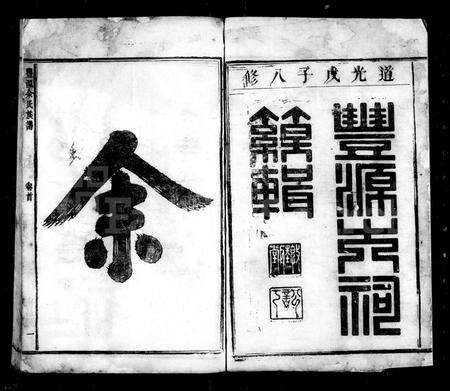 道光戊子八修
豐源大祠
輯
余
豐源余氏族譜
卷首
一